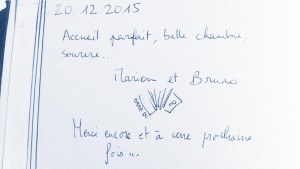 20.12.2015
Accueil parfait, belle chambre,
sourire...
Marion et Bruno
Merci encore et à une prochaine
fois...